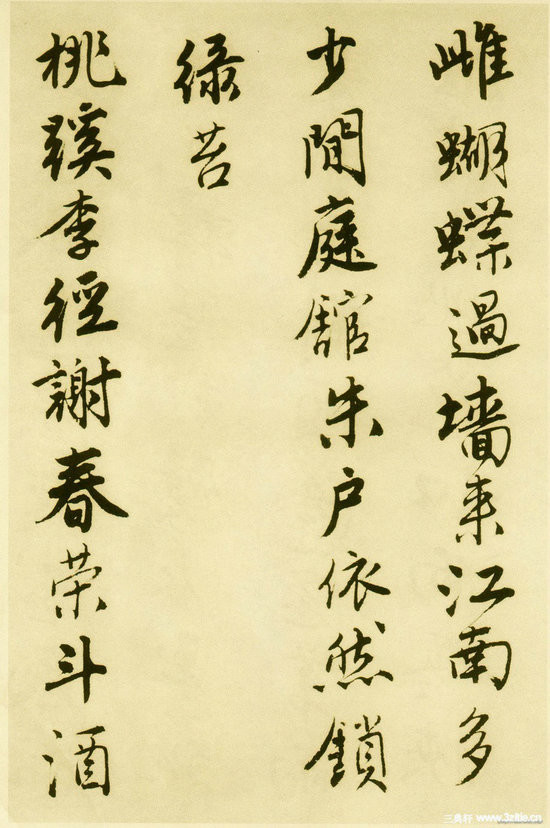 雌蝴蝶過墙来江南多
少閒庭館朱户依然鎖
緑苔
桃蹊李徑謝春荣斗酒
www.3zitie.cn